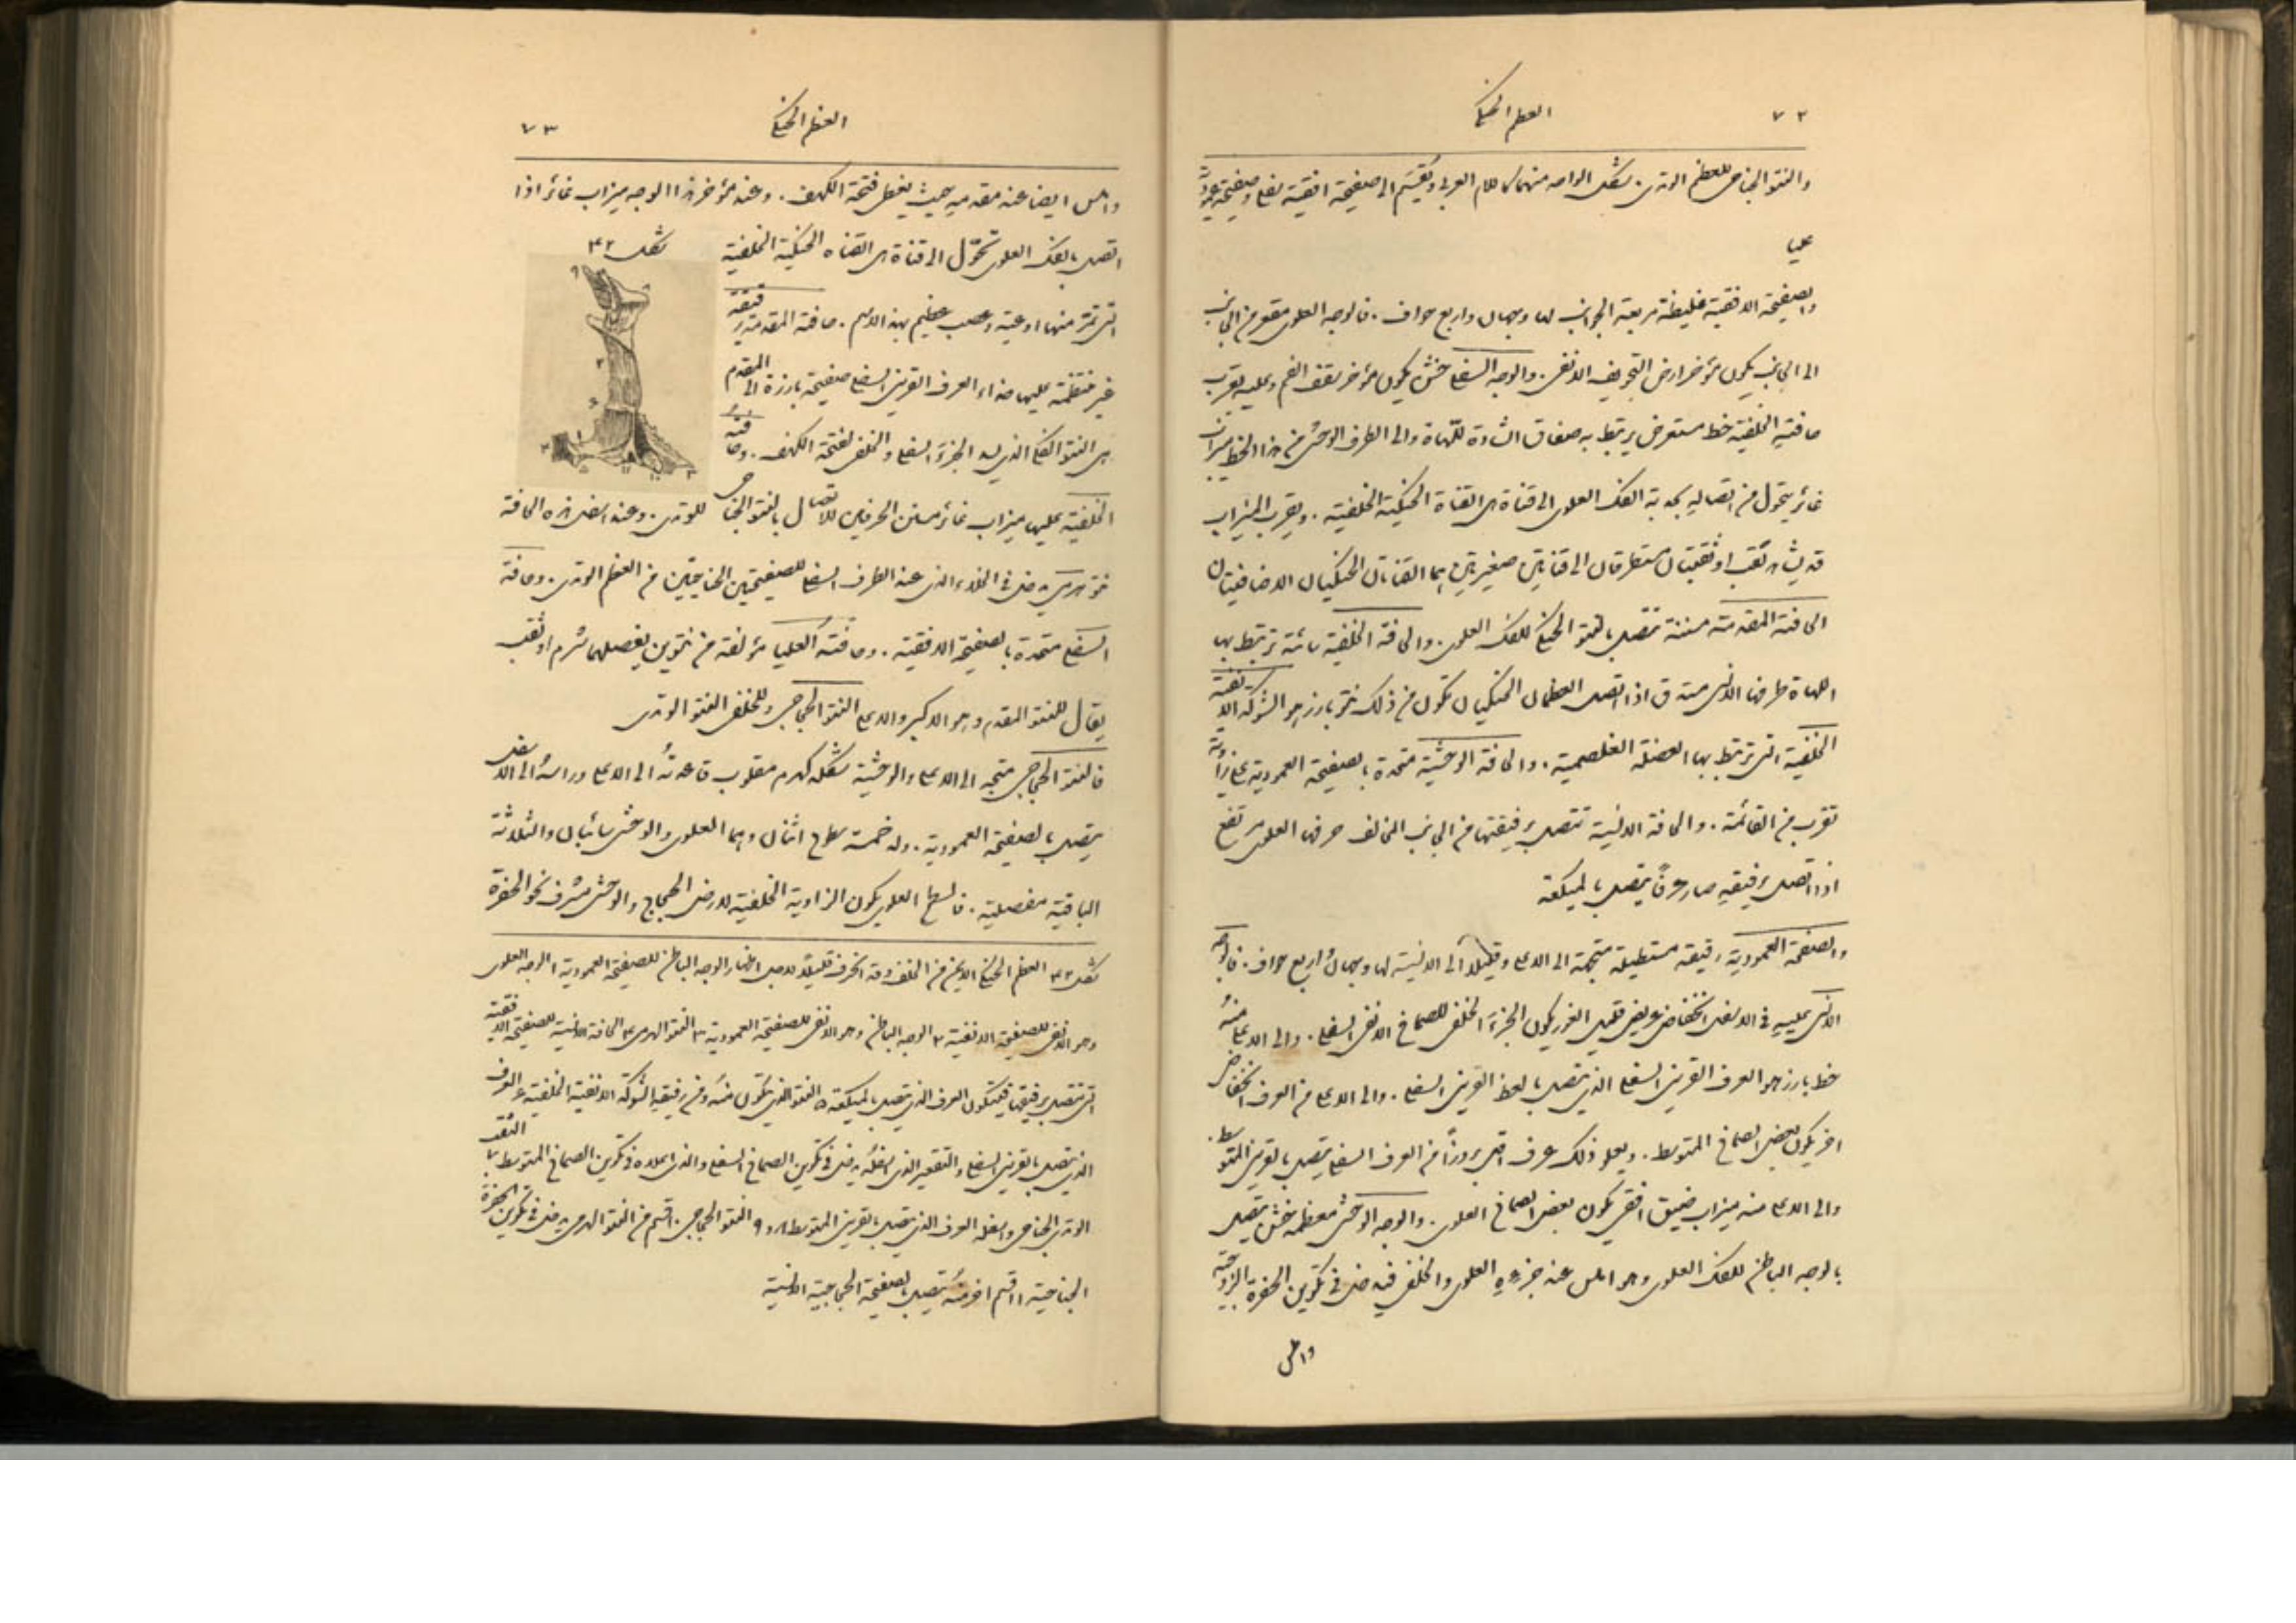 ٧٢
العظم الحنكي
والنتو الجناحي للعظم الوتدي. شكل الواحد منهما كاللام العربي ويُقسَم الى صفيحة افقية سفلى وصفيحة عمودية
عليا
والصفيحة الافقية غليظة مربعة الجوانب لها وجهان واربع حواف. فالوجه العلوي مقعر من الجانب
الى الجانب يكون مؤخر ارض التجويف الانفي. والوجه السفلي خشن يكون مؤخر سقف الفم وعليه بقرب
حافتهِ الخلفية خط مستعرض يرتبط به صفاق الشادة للّهاة والى الطرف الوحشي من هذا الخط ميزاب
غائر يتحول من اتصاله بحدبة الفك العلوي الى قناة هي القناة الحنكية الخلفية. وبقرب الميزاب
قد يشاهد ثقب او ثقبتان مستطرقان الى قناتين صغيرتين هما القناتان الحنكيتان الاضافيتان
الحافة المقدمة مسننة تتصل بالنتو الحنكي للفك العلوي. والحافة الخلفية سائبة ترتبط بها
اللهاة طرفها الانسي مستدق اذا اتصل العظمان الحنكيان تكون من ذلك نتو بارز هو الشوكة الانفية
الخلفية التي ترتبط بها العضلة الغلصمية. والحافة الوحشية متحدة بالصفيحة العمودية على زاوية
تقرب من القائمة. والحافة الانسية تتصل برفيقتها من الجانب المخالف حرفها العلوي مرتفع
اذا اتصل برفيقهِ صار عرفاً يتصل بالميكعة
والصفيحة العمودية رقيقة مستطيلة متجهة الى الاعلى وقليلاً الى الانسية لها وجهان واربع حواف. فالوجه
الانسي عليهِ في الاسفل انخفاض عريض قليل الغور يكون الجزء الخلفي للصماخ الانفي السفلي. والى الاعلى منهُ
خط بارز هو العرف القريني السفلي الذي يتصل بالعظم القريني السفلي. والى الاعلى من العرف انخفاض
اخر يكون بعض الصماخ المتوسط. ويعلو ذلك عرف اقل بروزاً من العرف السفلي يتصل بالقريني المتوسط.
والى الاعلى منه ميزاب ضيق افقي يكون بعض الصماخ العلوي. والوجه الوحشي معظمه خشن يتصل
بالوجه الباطن للفك العلوي وهو املس عند جزءهِ العلوي والخلفي فيدخل في تكوين الحفرة الزوجية
واملس
العظم الحنكي
٧٣
واملس ايضا عند مقدمهِ حيث يغطي فتحة الكهف. وعند مؤخر هذا الوجه ميزاب غائر اذا
اتصل بالفك العلوي تحوّل الى قناة هي القناة الحنكية الخلفية
شكل ٤٢
التي تمر منها اوعية وعصب عظيم بهذا الاسم. حافته المقدمة رقيقة
غير منتظمة عليها حذاء العرف القريني السفلي صفيحة بارزة الى المقدم
هي النتو الفكي الذي يسد الجزء السفلي والخلفي لفتحة الكهف. وحافتهُ
الخلفية عليها ميزاب غائر مسنن الحرفين للاتصال بالنتو الجناحي للوتدي. وعند اسفل هذه الحافة
نتو هرمي يدخل في الخلاء الذي عند الطرف السفلي للصفيحتين الجناحيتين من العظم الوتدي. وحافته
السفلى متحدة بالصفيحة الافقية. وحافته العليا مؤلفة من نتوين يفصلهما شرم او ثقب
يقال للنتو المقدم وهو الاكبر والاعلى النتو الحجاجي وللخلفي النتو الوتدي
فالنتو الحجاجي متجه الى الاعلى والوحشية شكله كهرم مقلوب قاعدتهُ الى الاعلى وراسهُ الى الاسفل
يتصل بالصفيحة العمودية. وله خمسة سطوح اثنان وهما العلوي والوحشي سائبان والثلاثة
الباقية مفصلية. فالسطح العلوي يكون الزاوية الخلفية لارض الحجاج والوحشي مشرف نحو الحفرة
شكل ٤٢ العظم الحنكي الايمن من الخلف وقد انحرف قليلاً لاجل اظهار الوجه الباطن للصفيحة العمودية ١ الوجه العلوي
وهو الانفي للصفيحة الافقية ٢ الوجه الباطن وهو الانفي للصفيحة العمودية ٣ النتو الهرمي ٤ الحافة الانسية للصفيحة الافقية
التي تتصل برفيقتها فيتكون العرف الذي يتصل بالميكعة ٥ النتو الذي يتكون منهُ ومن رفيقهِ الشوكة الانفية الخلفية ٦ العرف
الذي يتصل بالقريني السفلي والتقعير الذي اسفلهُ يدخل في تكوين الصماخ السفلي والذي اعلاه في تكوين الصماخ المتوسط ٧ الثقب
الوتدي الحنكي واسفله العرف الذي يتصل بالقريني المتوسط ٨ و ٩ النتو الحجاجي ١٠ قسم من النتو الهرمي يدخل في تكوين الحفرة
الجناحية ١١ قسم اخر منهُ يتصل بالصفيحة الجناحية الانسية